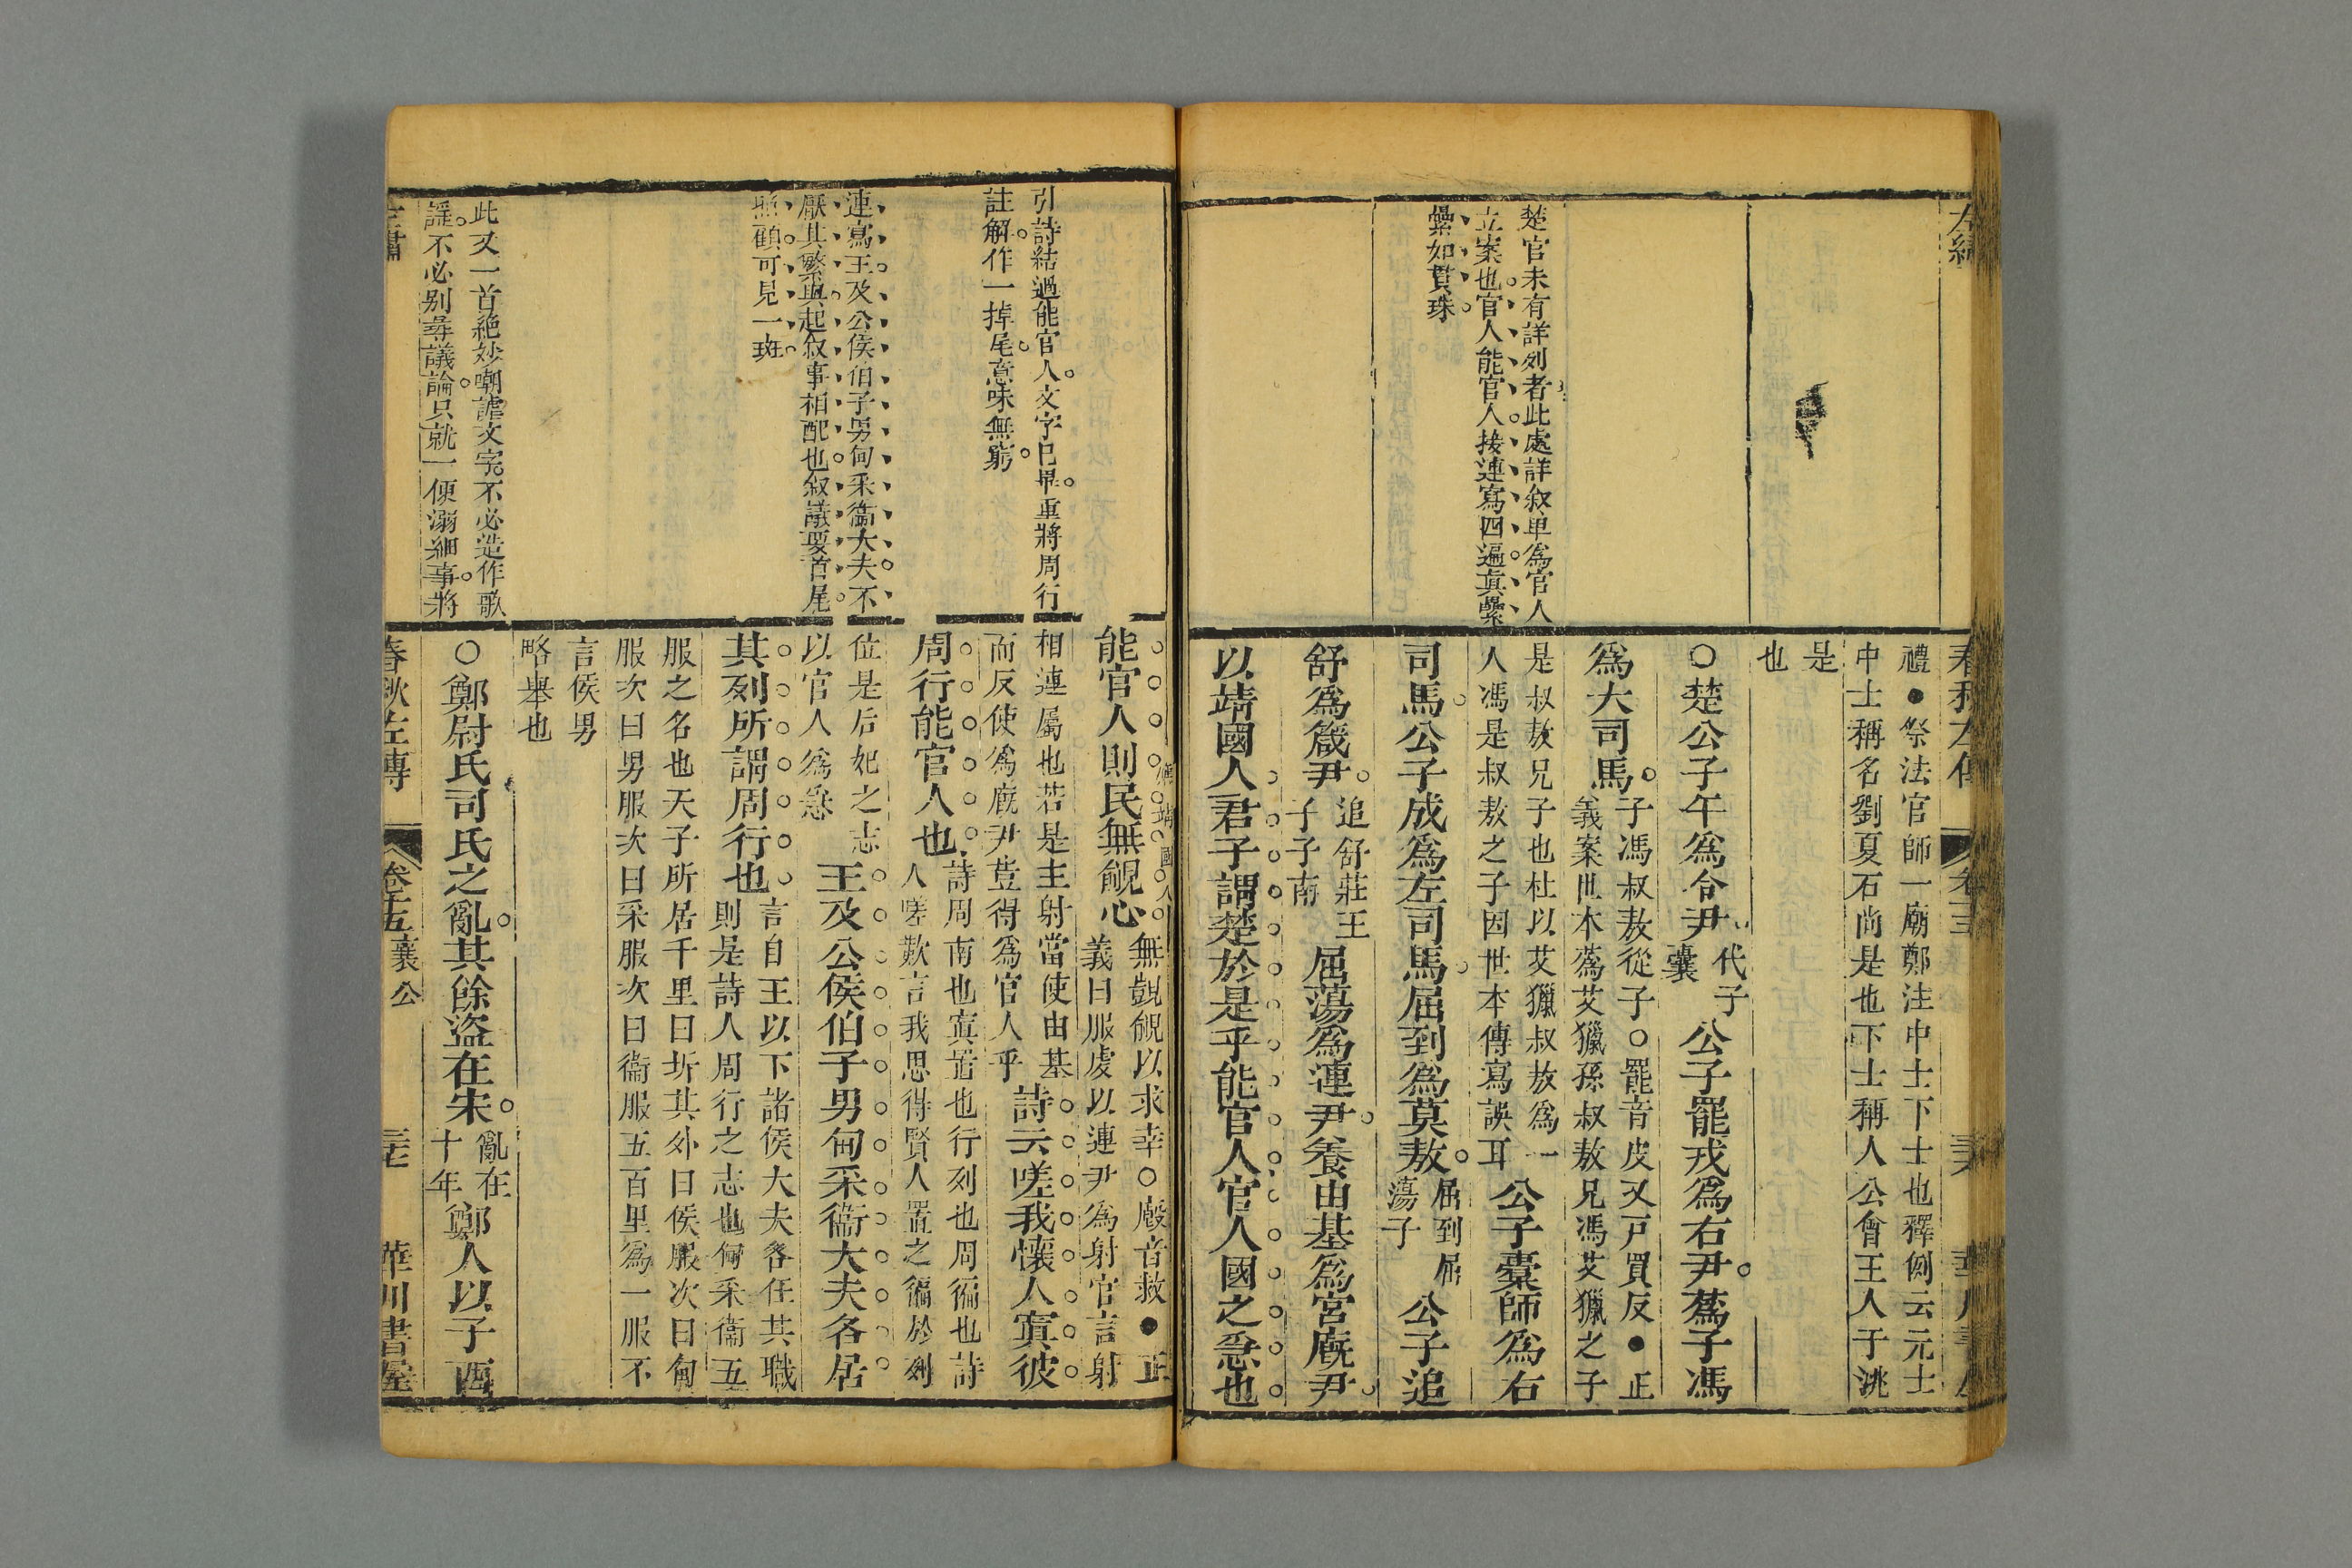 左繡
楚官未有詳列者此處詳叙单爲官人
立案也官人能官人接連寫四遍眞纍
纍如貫珠
春秋左傳
禮●祭法官師一廟鄭注中士下士也釋例云元士
中士稱名劉夏石尚是也下士稱人公會王人于洮
是
也
○楚公子午爲令尹
代子
囊
公子罷戎爲右尹蒍子馮
爲大司馬
子馮叔敖從子○罷音皮又戸買反●正
義案世本蒍艾獵孫叔敖兄馮艾獵之子
是叔敖兄子也杜以艾獵叔敖爲一
人馮是叔敖之子因世本傳寫誤耳
公子橐師爲右
司馬公子成爲左司馬屈到爲莫敖
屈到屈
蕩子
公子追
舒爲箴尹
追舒莊王
子子南
屈蕩爲連尹養由基爲宮廐尹
以靖國人君子謂楚於是乎能官人官人國之急也
引詩結過能官人文字已畢重將周行
註解作一掉尾意味無窮
連寫王及公侯伯子男甸采衞大夫不
厭其繁與起叙事相配也叙議要首尾
照顧可見一斑
此又一首絶妙嘲謔文字不必造作歌
謡不必别尋議論只就一便溺細事將
能官人則民無覦心
無覬覦以求幸○廐音救●正
義曰服虔以連尹爲射官言射
相連屬也若是主射當使由基
而反使爲廐尹豈得爲官人乎
詩云嗟我懷人寘彼
周行能官人也
詩周南也寘置也行列也周徧也詩
人嗟歎言我思得賢人置之徧於列
位是后妃之志
以官人爲急
王及公侯伯子男甸采衞大夫各居
其列所謂周行也
言自王以下諸侯大夫各任其職
則是詩人周行之志也甸采衞五
服之名也天子所居千里曰圻其外曰侯服次曰甸
服次曰男服次曰采服次曰衞服五百里爲一服不
言侯男
略舉也
○鄭尉氏司氏之亂其餘盗在宋
亂在
十年
鄭人以子西
春秋左傳
卷十五
襄公
華川書屋